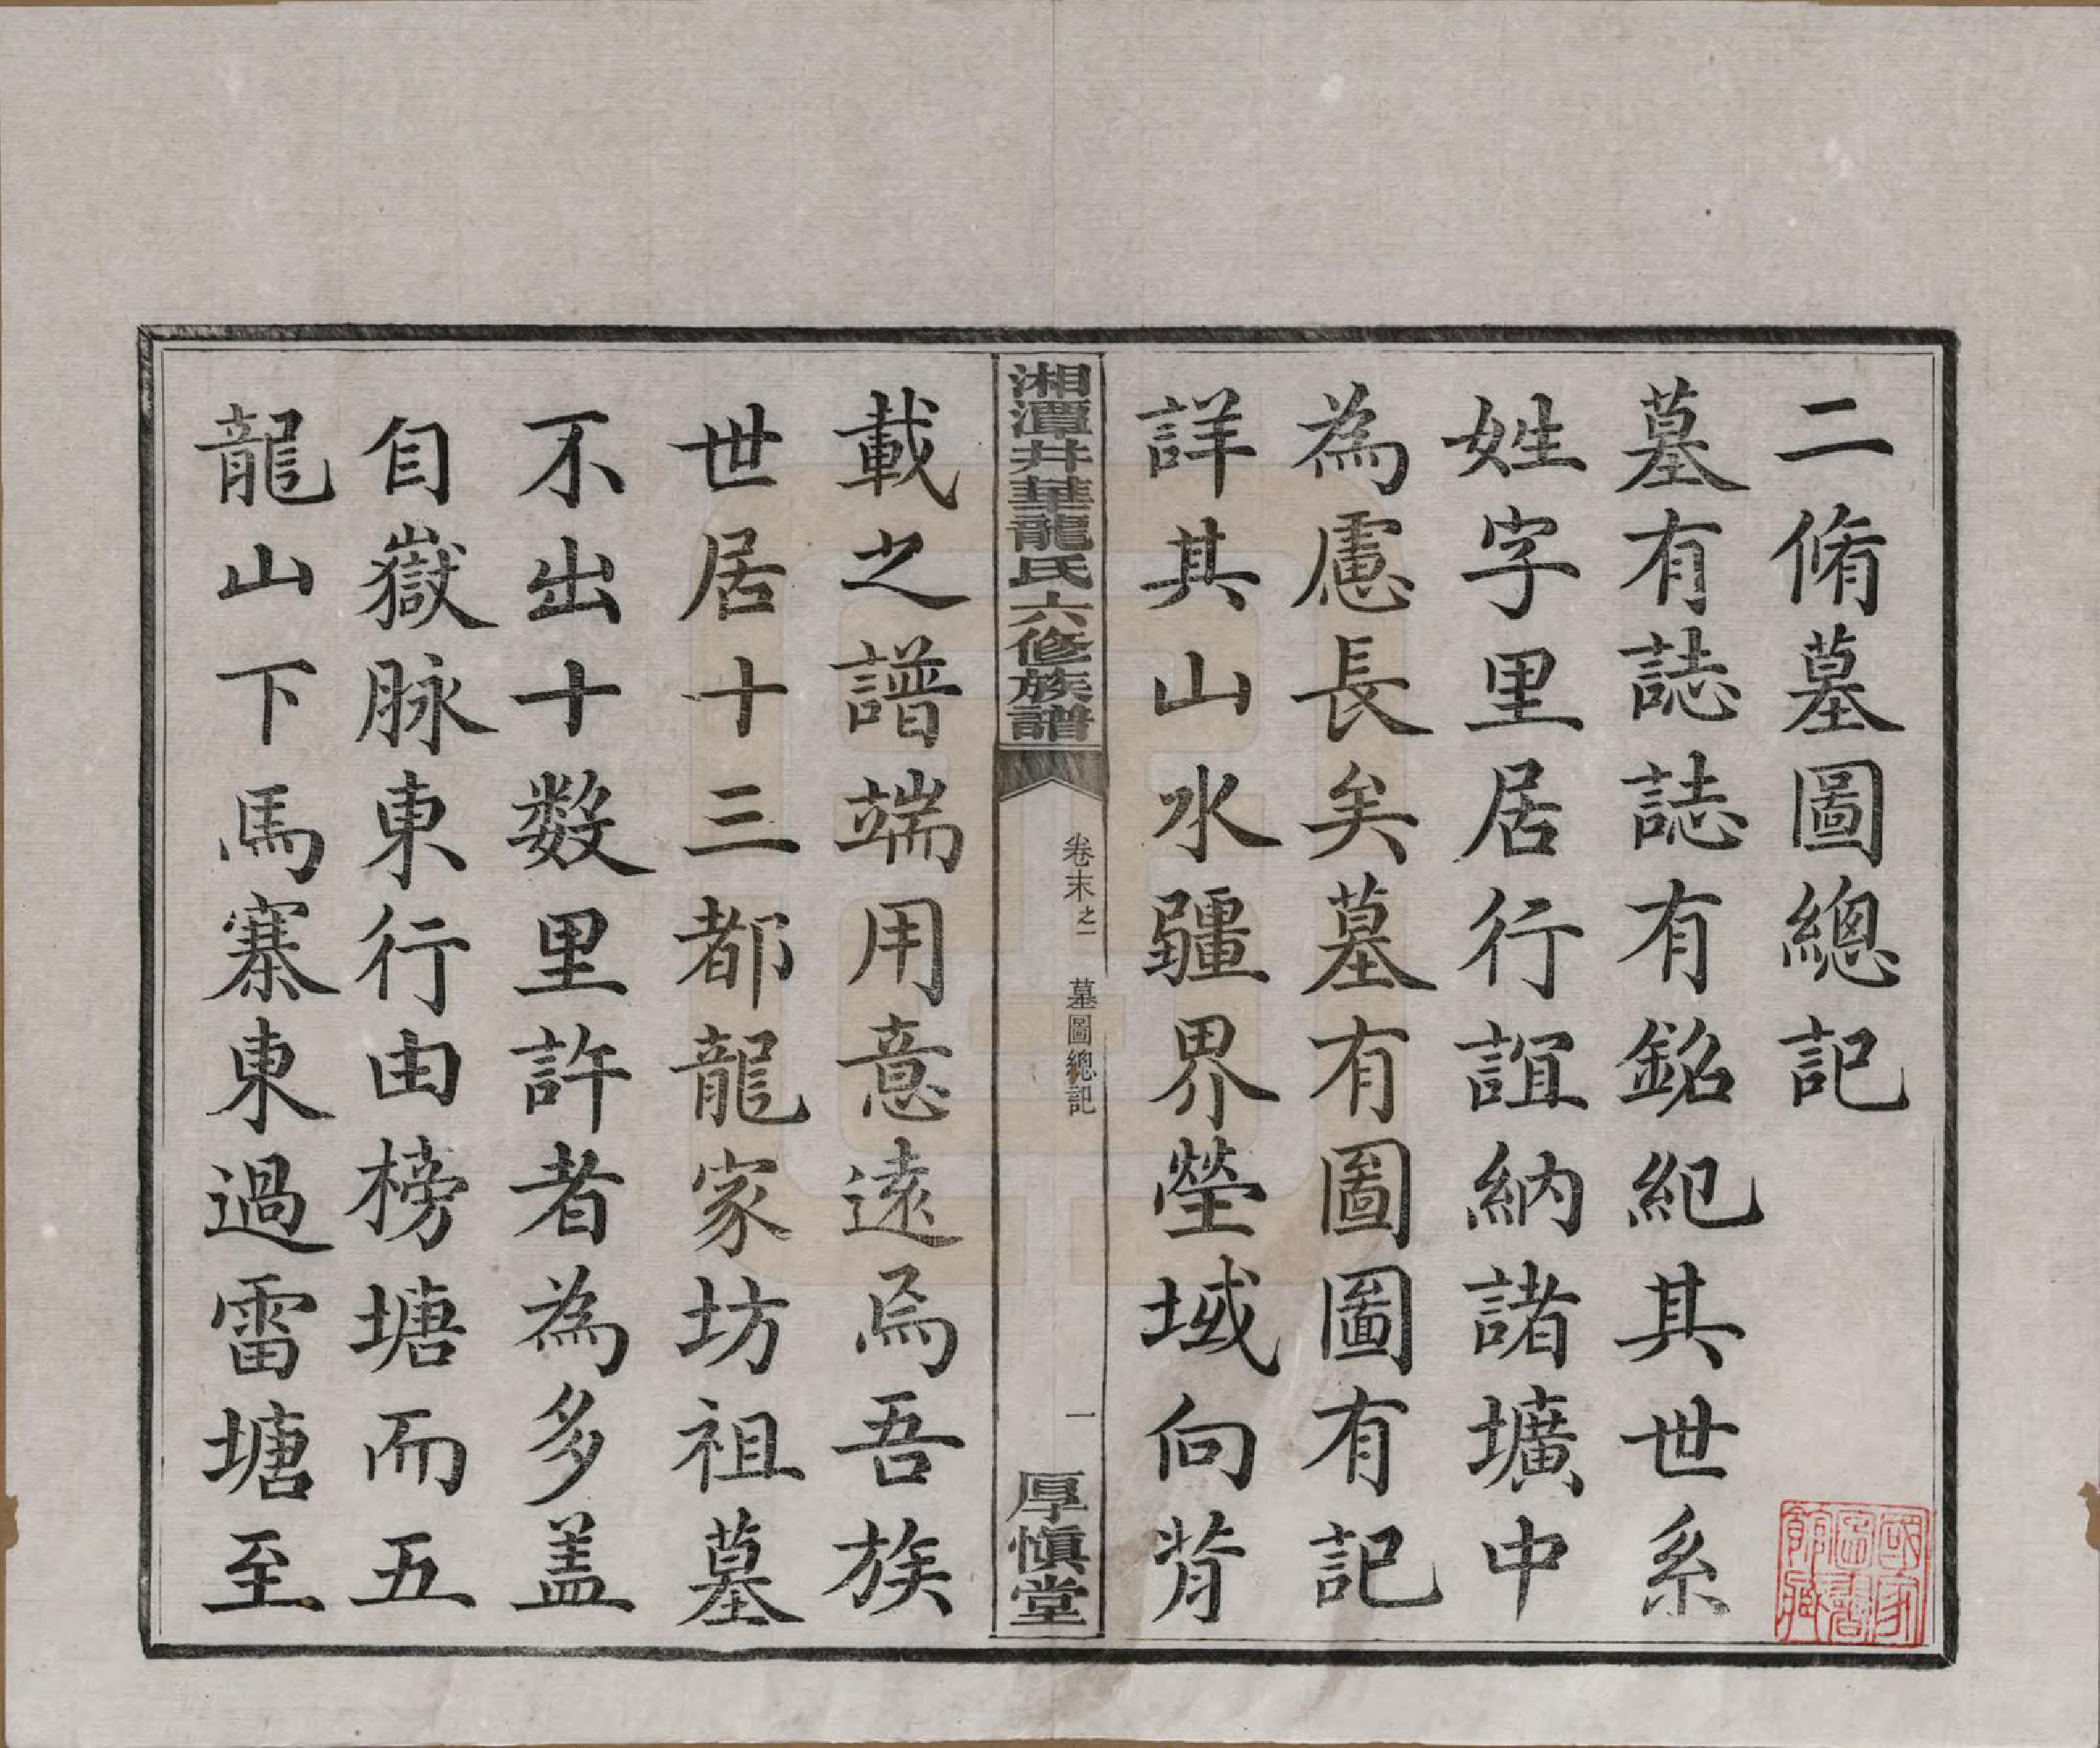 二脩墓圖總記
墓有誌誌有銘紀其世系
姓字里居行誼納諸壙中
為慮長矣墓有圖圖有記
詳其山水疆界塋域向背
湘潭井華龍氏六修族譜
卷末之一
墓圖總記
一
厚慎堂
載之譜端用意遠焉吾族
世居十三都龍家坊祖墓
不出十数里許者為多盖
自嶽脉東行由榜塘而五
龍山下馬寨東過雷塘至
國家
圖書
館藏